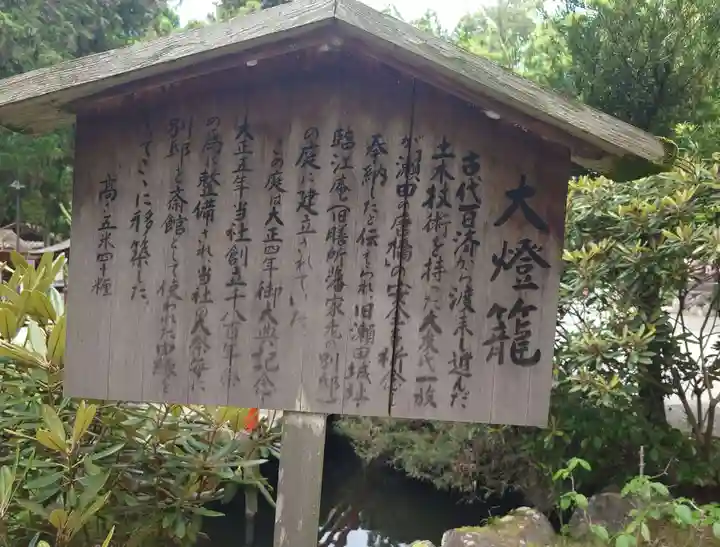 大燈籠
古代百済から渡来し近んだ
土木技術を持った大友代一族
が瀬田の唐橋の安全を祈念し
奉納したと伝えられ旧瀬田城址
臨江庵(旧膳所藩家老の別邸)
の庭に建立されていた
この庭は大正四年御大典記念
大正五年当社創立千八百年祭
の為に整備され当社の大祭毎に
別邸と斎館として使われた由縁を
してここに移築した。
高五米四十糎